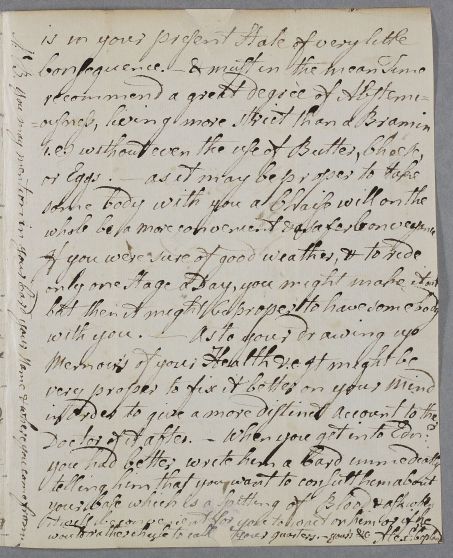 is in your present State of very little
Consequence. — & must in the mean Time
recommend a great degree of Abstemi=
=ousness, living more strict than a Bramin
i.e. without even the use of Butter, Cheese,
or Eggs. — as it may be proper to take
some body with you a Chaise will on the
whole be a more convenient & safer Conveyance
if you were sure of good weather, & to ride
only one Stage a Day, you might make it out
but then it might be proper to have some body
with you. — As to your drawing up
Memoirs of your Health &c it might be
very proper to fix it better on your Mind
in order to give a more distinct Account to the
Doctor of it after. — When you get into Edin.
you had better write him a Card immediately
telling him that you want to consult him about
your Case which is a spitting of Blood & ask
it will be convenient for you to wait on him or if he
would rather chuse to call your quarters. — yours &c
N.B. you may mention in your Card your Name & where you come from